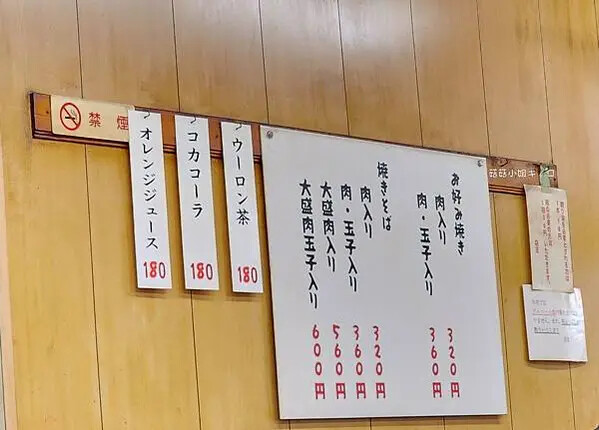 禁煙
お好み焼き
肉入り 320円
肉・玉子入り 360円
焼きそば
肉入り 320円
肉・玉子入り 360円
大盛肉入り 560円
大盛肉玉子入り 600円
ウーロン茶 180
コカコーラ 180
オレンジジュース 180
菇菇小姐キノコ